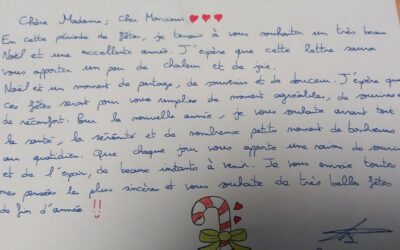 Chère Madame, Cher Monsieur ❤❤❤
En cette période de fêtes, je tenais à vous souhaiter un très beau
Noël et une excellente année. J'espère que cette lettre saura
vous apporter un peu de chaleur et de joie.
Noël et un moment de partage, de souvenirs et de douceur. J'espère que
ces fêtes seront pour vous remplies de moment agréables, de sourires
de réconfort. Pour la nouvelle année, je vous souhaite avant tout
la santé, la sérénité et de nombreux petits moment de bonheurs
au quotidien. Que chaque jour vous apporte une raison de sourire
et de l'espoir, de beaux instants à venir. Je vous envoie toutes
mes pensées les plus sincères et vous souhaite de très belles fêtes
de fin d'année !!